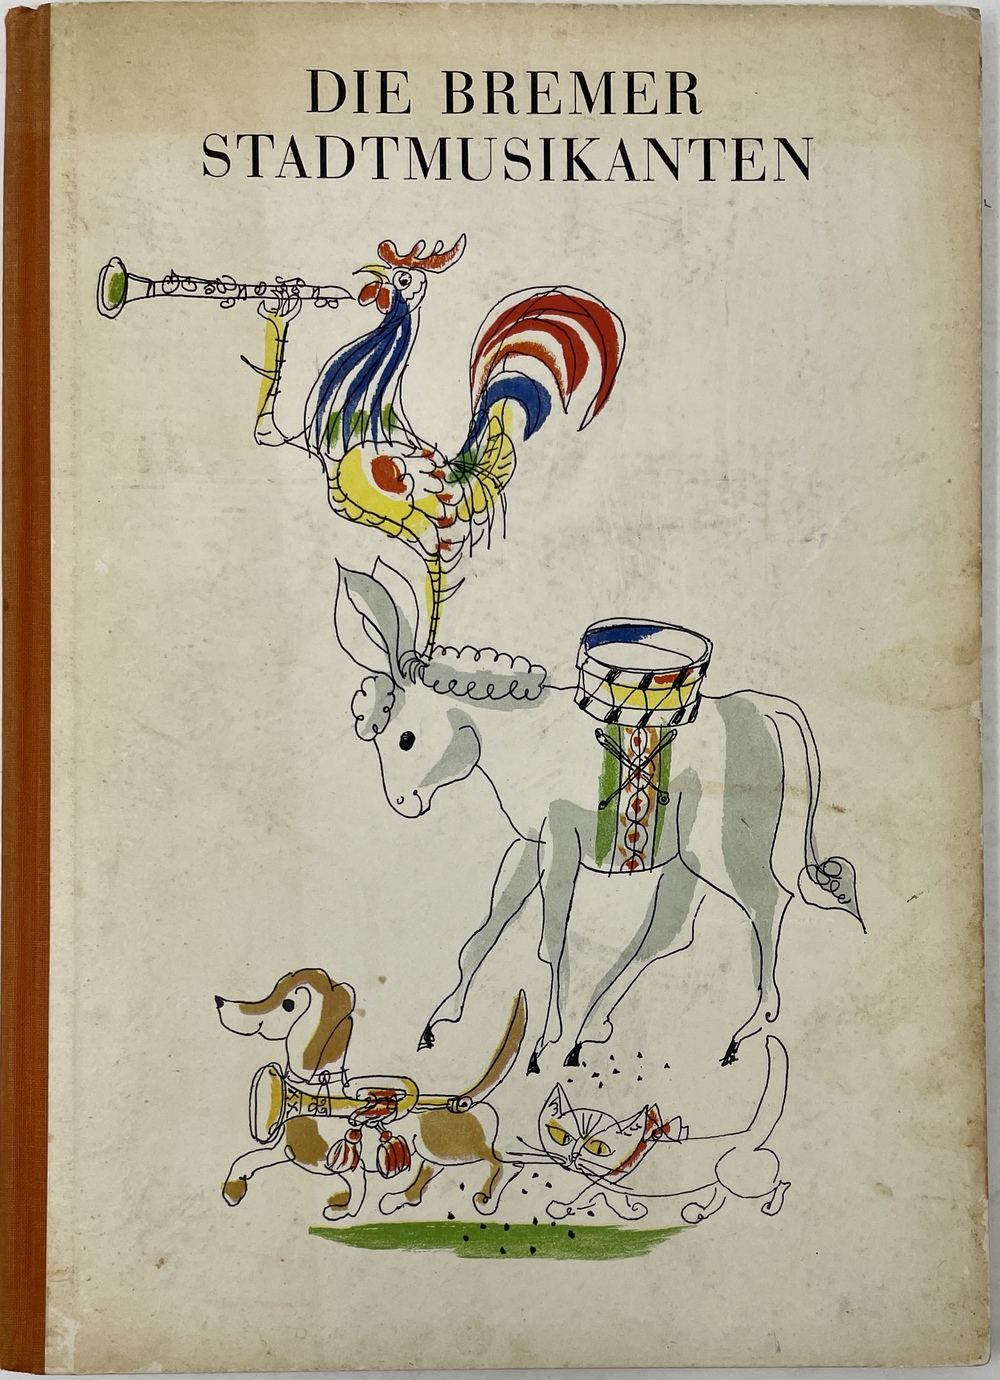 DIE BREMER
STADTMUSIKANTEN